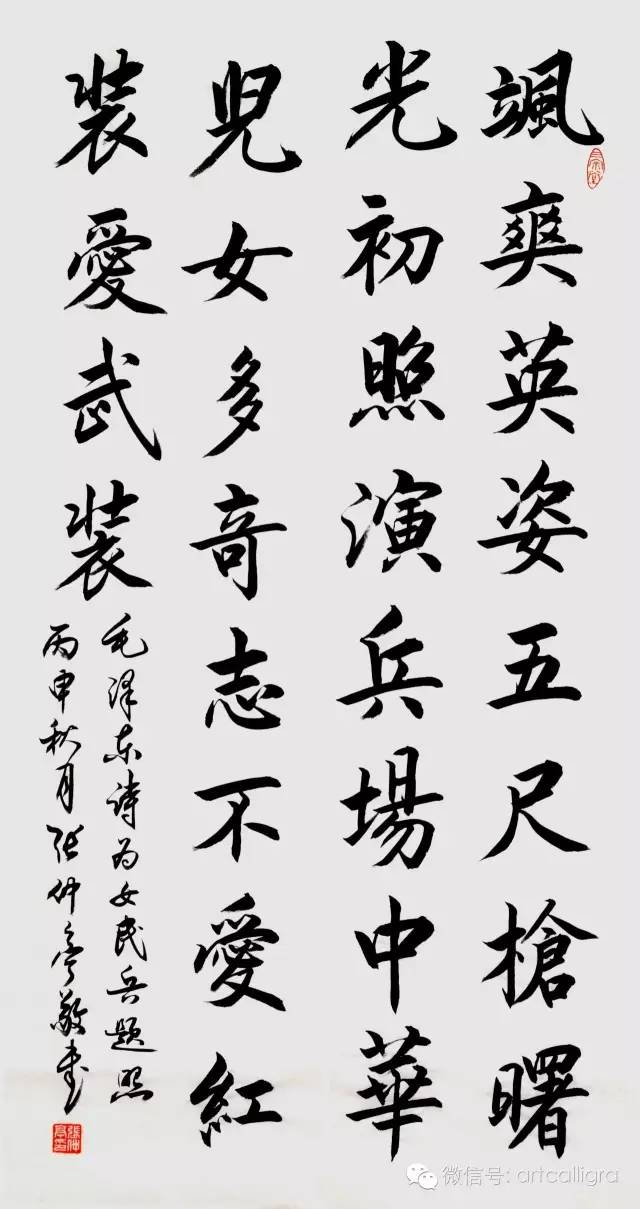 颯爽英姿五尺槍曙
光初照演兵場中華
兒女多奇志不愛紅
裝愛武裝
毛泽东诗为女民兵题照
丙申秋月张仲亭敬书
張仲亭書
微信号: artcalligra